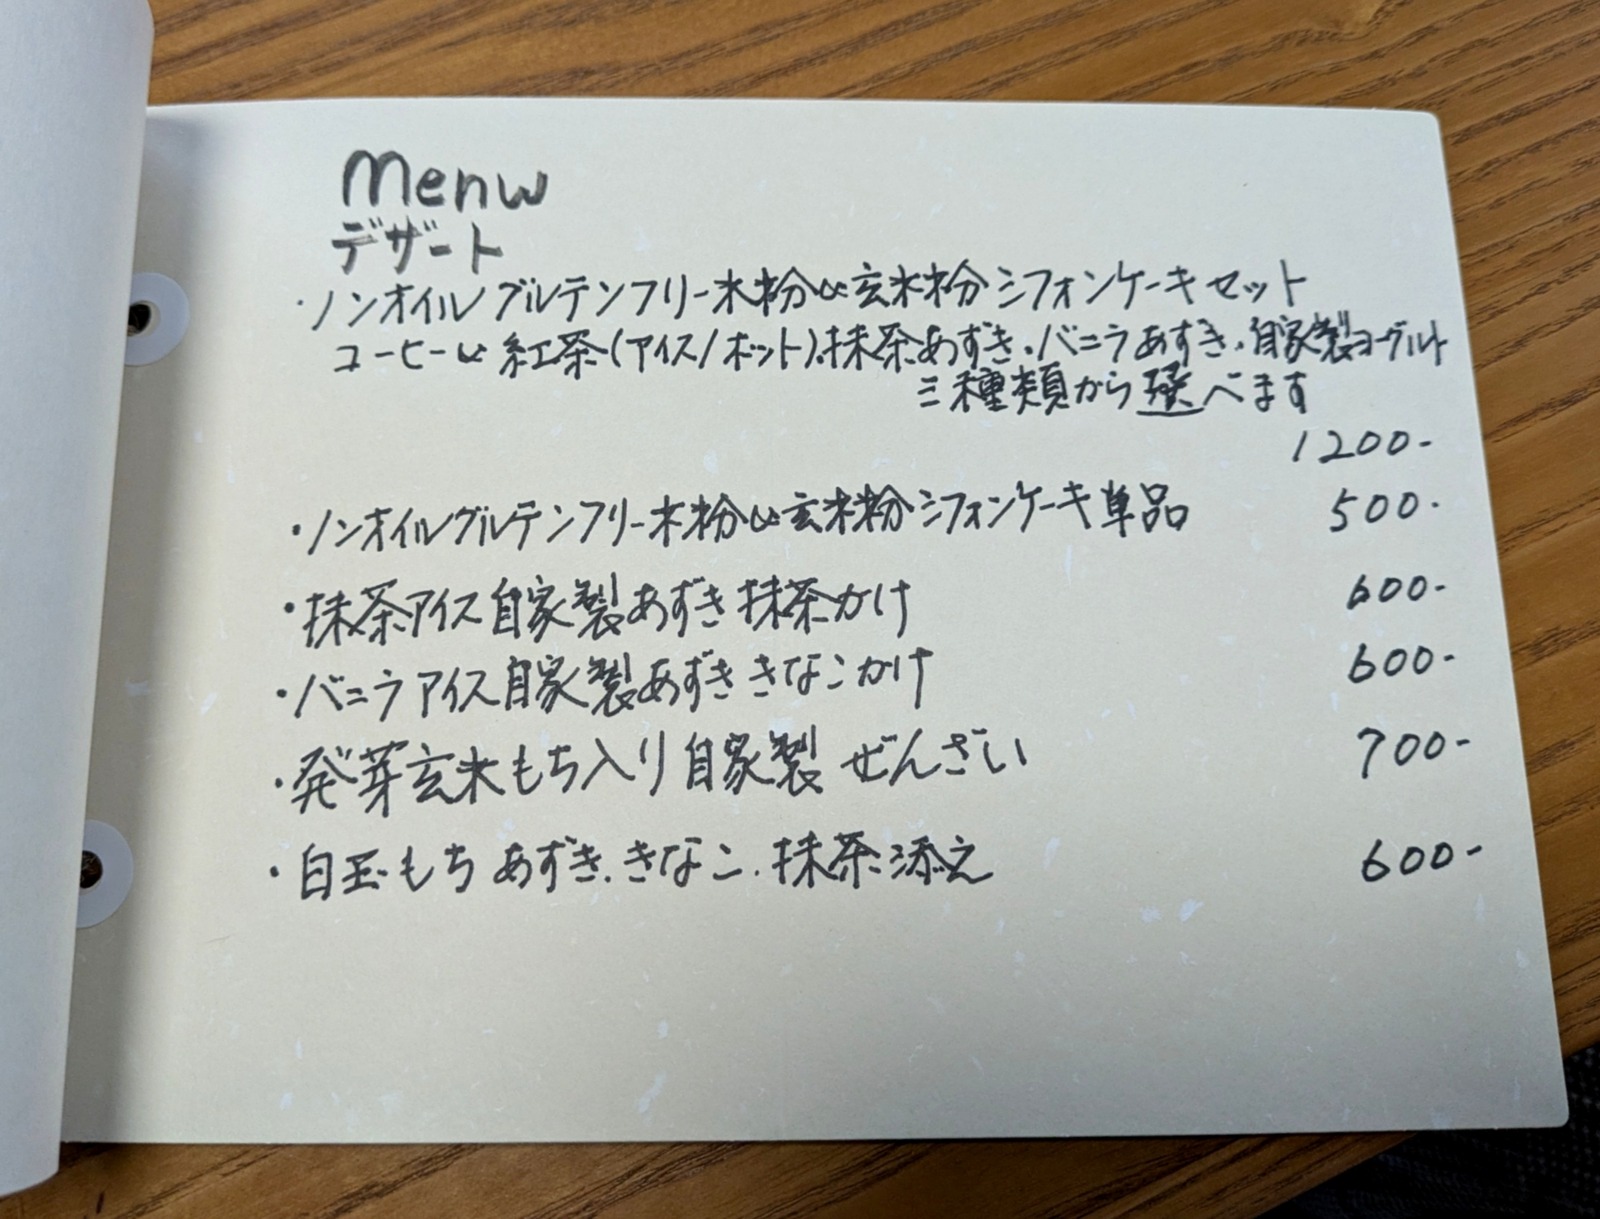 Menu
デザート
・ノンオイルグルテンフリー米粉or玄米粉シフォンケーキセット
コーヒーor紅茶(アイス/ホット).抹茶あずき.バニラあずき.自家製ヨーグルト
三種類から選べます
1200-
・ノンオイルグルテンフリー米粉or玄米粉シフォンケーキ単品 500-
・抹茶アイス自家製あずき抹茶かけ 600-
・バニラアイス自家製あずききなこかけ 600-
・発芽玄米もち入り自家製ぜんざい 700-
・白玉もち あずき.きなこ.抹茶添え 600-